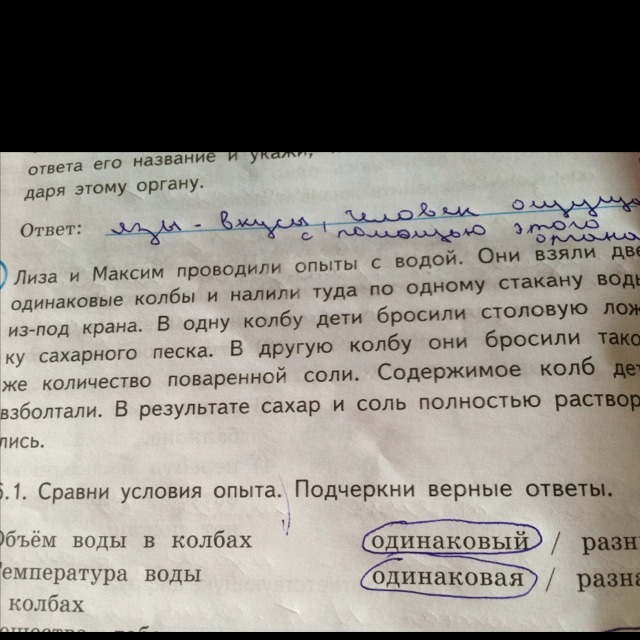 ответа его название и укажи,
даря этому органу.
Ответ: язы - вкусы, человек ощуща
с помощью этого
органа
Лиза и Максим проводили опыты с водой. Они взяли две
одинаковые колбы и налили туда по одному стакану воды
из-под крана. В одну колбу дети бросили столовую лож
ку сахарного песка. В другую колбу они бросили тако
же количество поваренной соли. Содержимое колб дет
взболтали. В результате сахар и соль полностью раствор
лись.
6.1. Сравни условия опыта. Подчеркни верные ответы.
Объём воды в колбах одинаковый / разн
Температура воды одинаковая / разна
колбах